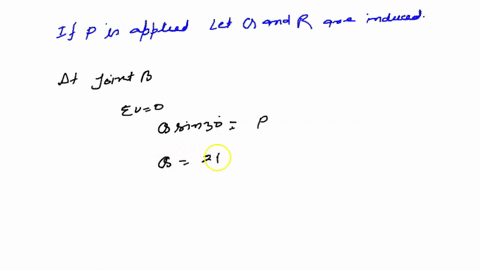 If P is applied Let Q and R are induced.
At Joint B
Σv=0
Q sin30 = P
Q = 2